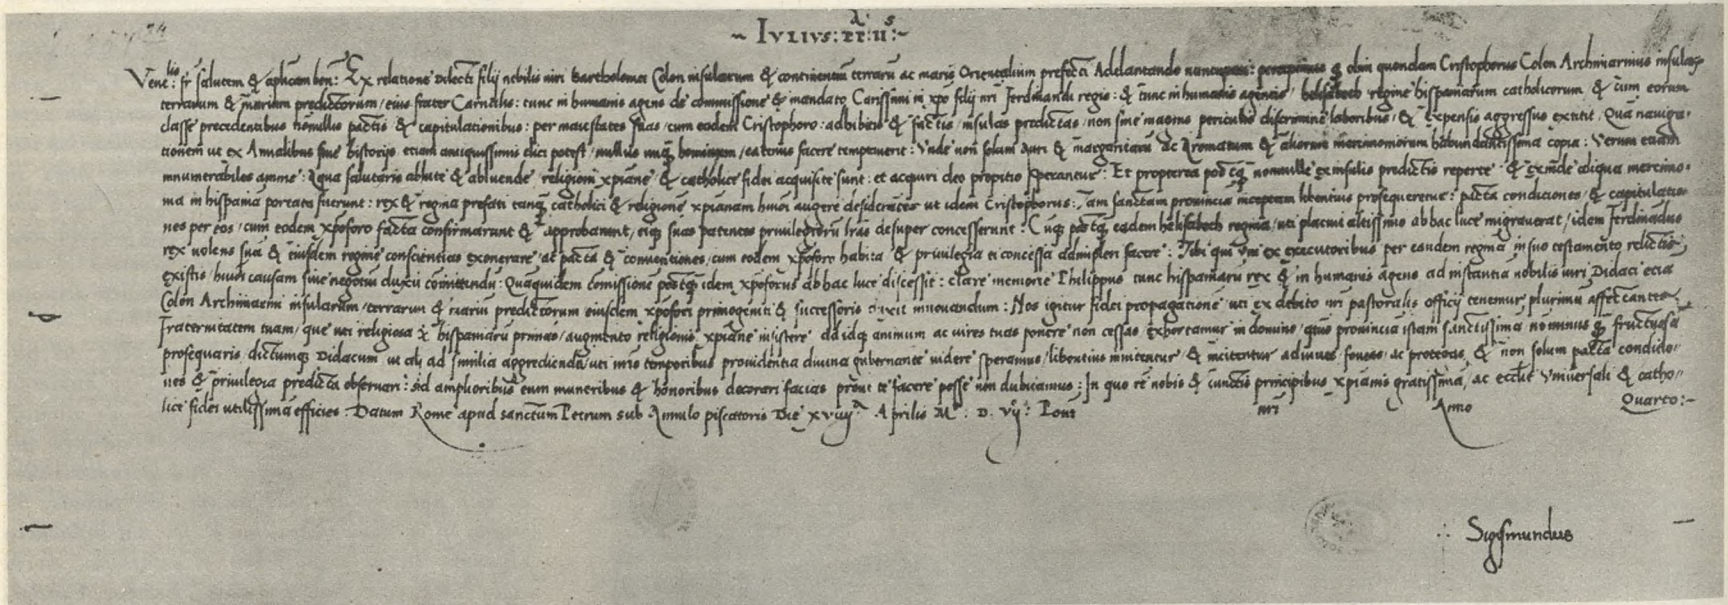 ~ Iulius: PP: II: ~
Vene: fr: salutem & aplicam ben: Ex relatione dilecti filij nobilis viri Bartholomei Colon insularum & continentiū terrarū ac maris Orientalium prefecti Adelantando nuncupati: percepimus quondam Cristophorus Colon Archimarinus insularū
terrarum & marium predictorum / eius frater Carnalis: tunc in humanis agens de commissione & mandato Carissimi in xpo filij nri Ferdinandi regis: & tunc in humanis agentis / helisabeth regine hispaniarum catholicorum & cum eorum
classe precedentibus nōnullis pactis & capitulationibus: per maiestates suas / cum eodem Cristophoro: adhibitis & factis / insulas predictas / non sine magnis periculis discrimine laboribus / & expensis aggressus extitit. Quā naviga-
tionem ut ex Annalibus sive historijs etiam antiquissimis elici potest / nullus unq̄ hominum / eatenus facere temptaverit: Unde non solum Auri & margaritarū ac Aromatum & aliorum mercimoniorum habundantissima copia: Verum etiam
innumerabiles anime: Aqua salutaris ablute & abluende religioni xpiane & catholice fidei acquisite sunt: et acquiri deo propitio sperantur. Et propterea postq̄ nonnulle ex insulis predictis reperte & exinde aliqua mercimo-
nia in hispaniā portata fuerunt: rex & regina prefati tanq̄ catholici & religionē xpianam huiusmodi augere desiderātes ut idem Cristophorus: iam sanctam provinciā inceptam libentius prosequeretur: pacta condiciones / & capitulatio-
nes per eos / cum eodem xpoforo facta confirmarunt & approbarunt / suas patentes privilegiorū lrās desuper concesserunt: Cūq̄ postq̄ eadem helisabeth regina / uti placuit altissimo ab hac luce migraverat / idem Ferdinādus
rex volens suā & eiusdem regine conscientias exonerare / ac pacta & conventiones / cum eodem xpoforo habita & privilegia ei concessa adimpleri facere: Tibi qui unus ex executoribus per eandem reginā in suo testamento relictis
existis / huiusmodi causam sive negotiū duxit cōmittendū: Quāquidem comissionē postq̄ idem xpoforus ab hac luce discessit: clare memorie Philippus tunc hispaniarū rex & in humanis agens ad instantiā nobilis viri Didaci etiā
Colon Archimarini insularum / terrarum & mariū predictorum eiusdem xpofori primogeniti & successoris duxit innovandum: Nos igitur fidei propagationē uti ex debito nri pastoralis officij tenemur plurimū affectantes
Fraternitatem tuam / que uti religiosa & hispaniarū primas / augmento religionis xpiane insistere ad idq̄ animum ac vires tuas ponere non cessas exhortamur in domino / quo provinciā istam sanctissimā no minus q̄ fructuosā
prosequaris dictumq̄ Didacum ut alij ad similia aggredienda / uti nris temporibus providentia divina gubernante videre speramus / libentius invitentur & incitentur adiuves foveas ac protegas & non solum pacta conditio-
nes & privilegia predicta observari: sed amplioribus eum muneribus & honoribus decorari facias prout te facere posse non dubitamus: In quo rē nobis & cunctis principibus xpianis gratissimā / ac ecclie Universali & catho-
lice fidei utilissimā efficies. Datum Rome apud sanctum Petrum sub Annulo piscatoris Die xviiij Aprilis M: D. VIJ: Pont nri Anno Quarto:-
Sigismundus